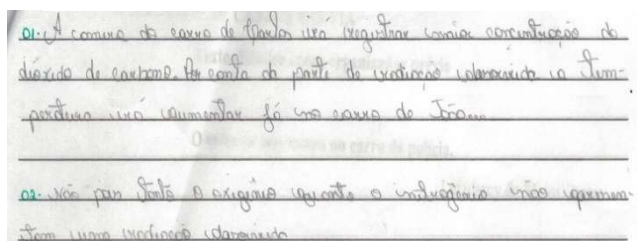 01. A camera do carro de Carlos irá registrar maior concentração do
dióxido de carbono. Por conta da parte de radiação a tem-
peratura irá aumentar já no carro de João...
02. Não pois tanto o oxigênio quanto o nitrogênio não
tam uma radiação